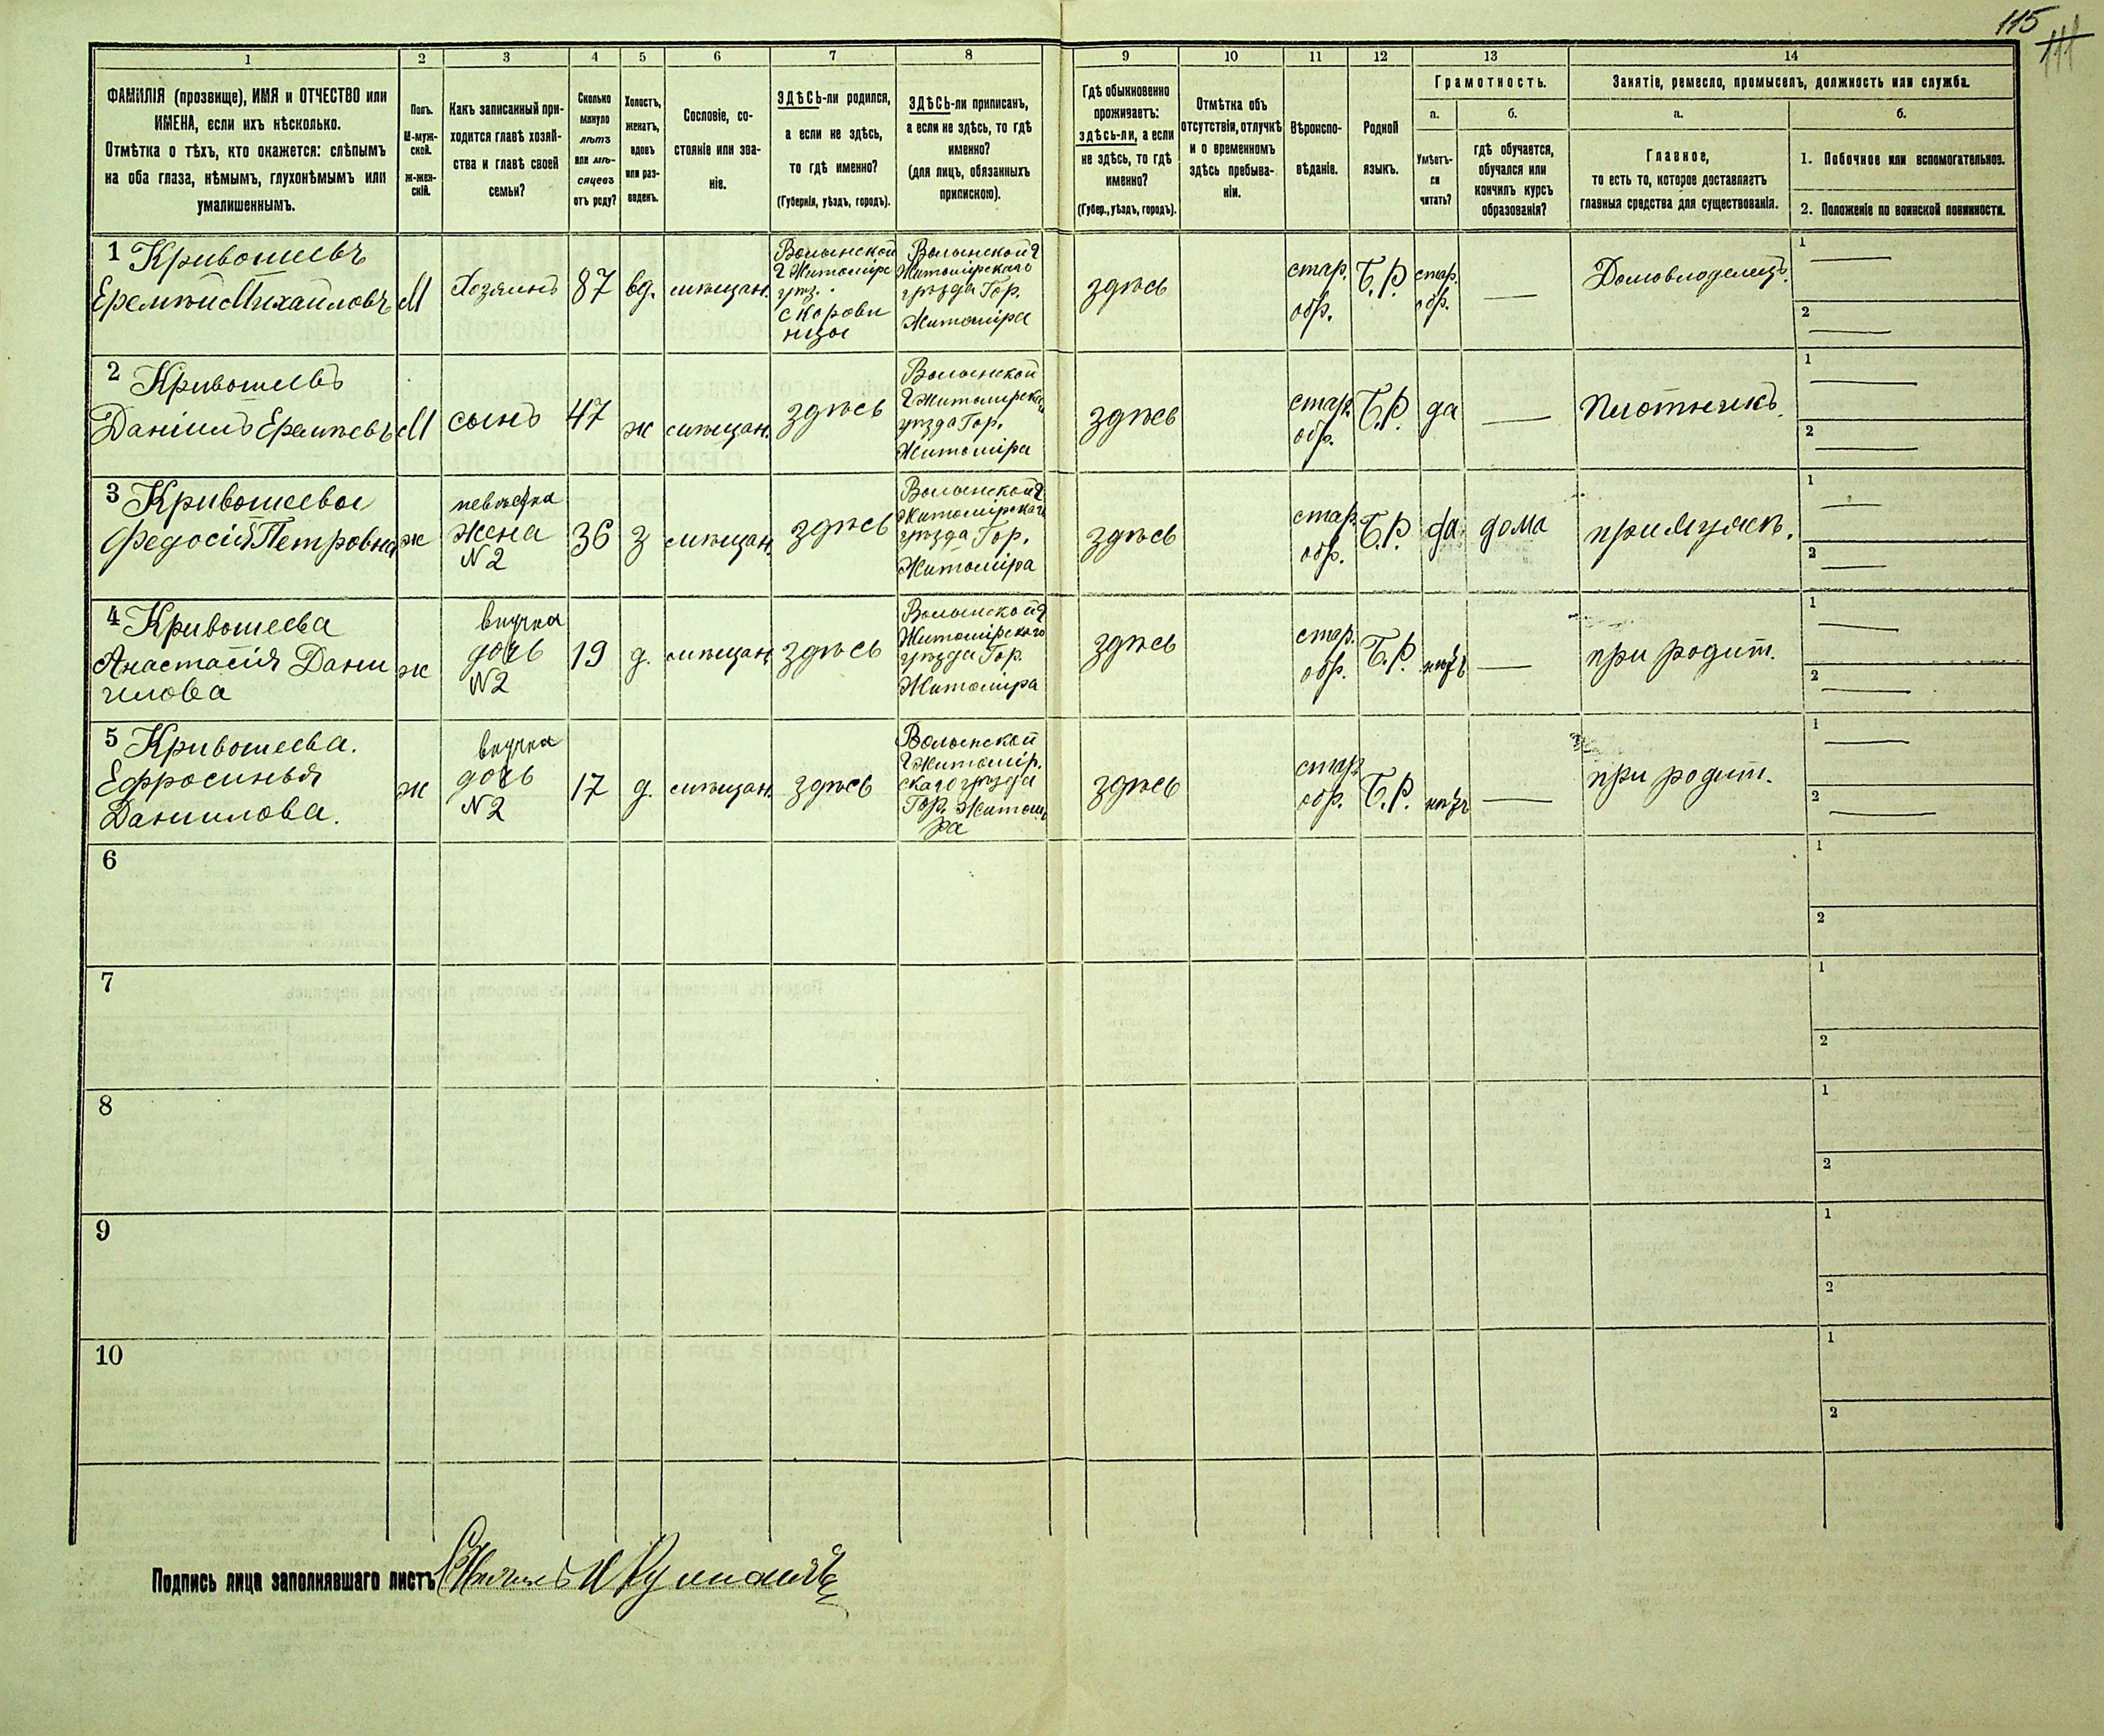 115
1
2
3
4
5
6
7
8
9
10
11
12
13
14
ФАМИЛІЯ (прозвище), ИМЯ и ОТЧЕСТВО или
ИМЕНА, если ихъ нѣсколько.
Отмѣтка о тѣхъ, кто окажется: слѣпымъ
на оба глаза, нѣмымъ, глухонѣмымъ или
умалишеннымъ.
Полъ.
М-муж-
ской.
Ж-жен-
скій.
Какъ записанный при-
ходится главѣ хозяй-
ства и главѣ своей
семьи?
Сколько
минуло
лѣтъ
или мѣ-
сяцевъ
отъ роду?
Холостъ,
женатъ,
вдовъ
или раз-
веденъ.
Сословіе, со-
стояніе или зва-
ніе.
ЗДѢСЬ-ли родился,
а если не здѣсь,
то гдѣ именно?
(Губернія, уѣздъ, городъ).
ЗДѢСЬ-ли приписанъ,
а если не здѣсь, то гдѣ
именно?
(для лицъ, обязанныхъ
припискою).
Гдѣ обыкновенно
проживаетъ:
здѣсь-ли, а если
не здѣсь, то гдѣ
именно?
(Губер., уѣздъ, городъ).
Отмѣтка объ
отсутствіи, отлучкѣ
и о временномъ
здѣсь пребыва-
ніи.
Вѣроиспо-
вѣданіе.
Родной
языкъ.
Грамотность.
а.
Умѣетъ-
ли
читать?
б.
гдѣ обучается,
обучался или
кончилъ курсъ
образованія?
Занятіе, ремесло, промыселъ, должность или служба.
а.
Главное,
то есть то, которое доставляетъ
главныя средства для существованія.
б.
1. Побочное или вспомогательное.
2. Положеніе по воинской повинности.
1 Кривошеевъ
Еремѣй Михайловъ
М
Хозяинъ
87
вд.
мѣщан.
Волынской
г Житомірс
уѣз.
с Корови
нцы
Волынской г
Житомірскаго
уѣзда Гор.
Житоміра
здѣсь
стар.
обр.
Б.Р.
стар.
обр.
—
Домовладелецъ.
1 —
2 —
2 Кривошеевъ
Даніилъ Еремѣевъ
М
сынъ
47
ж
мѣщан.
здѣсь
Волынской
г Житомірскаго
уѣзда Гор.
Житоміра
здѣсь
стар.
обр.
Б.Р.
да
—
Плотникъ.
1 —
2 —
3 Кривошеевы
Федосія Петровна
ж
невѣстка
Жена
№2
36
з
мѣщан.
здѣсь
Волынской г
Житомірскаго
уѣзда Гор.
Житоміра
здѣсь
стар.
обр.
Б.Р.
да
дома
при мужѣ.
1 —
2 —
4 Кривошеева
Анастасія Дани
илова
ж
внучка
дочь
№2
19
д.
мѣщан.
здѣсь
Волынской г
Житомірскаго
уѣзда Гор.
Житоміра
здѣсь
стар.
обр.
Б.Р.
нѣтъ
—
при родит.
1 —
2 —
5 Кривошеева.
Ефросинья
Данилова.
ж
внучка
дочь
№2
17
д.
мѣщан.
здѣсь
Волынской
г Житомір.
скаго уѣзда
Гор. Житомі
ра
здѣсь
стар.
обр.
Б.Р.
нѣтъ
—
при родит.
1 —
2 —
6
1
2
7
1
2
8
1
2
9
1
2
10
1
2
Подпись лица заполнявшаго листъ